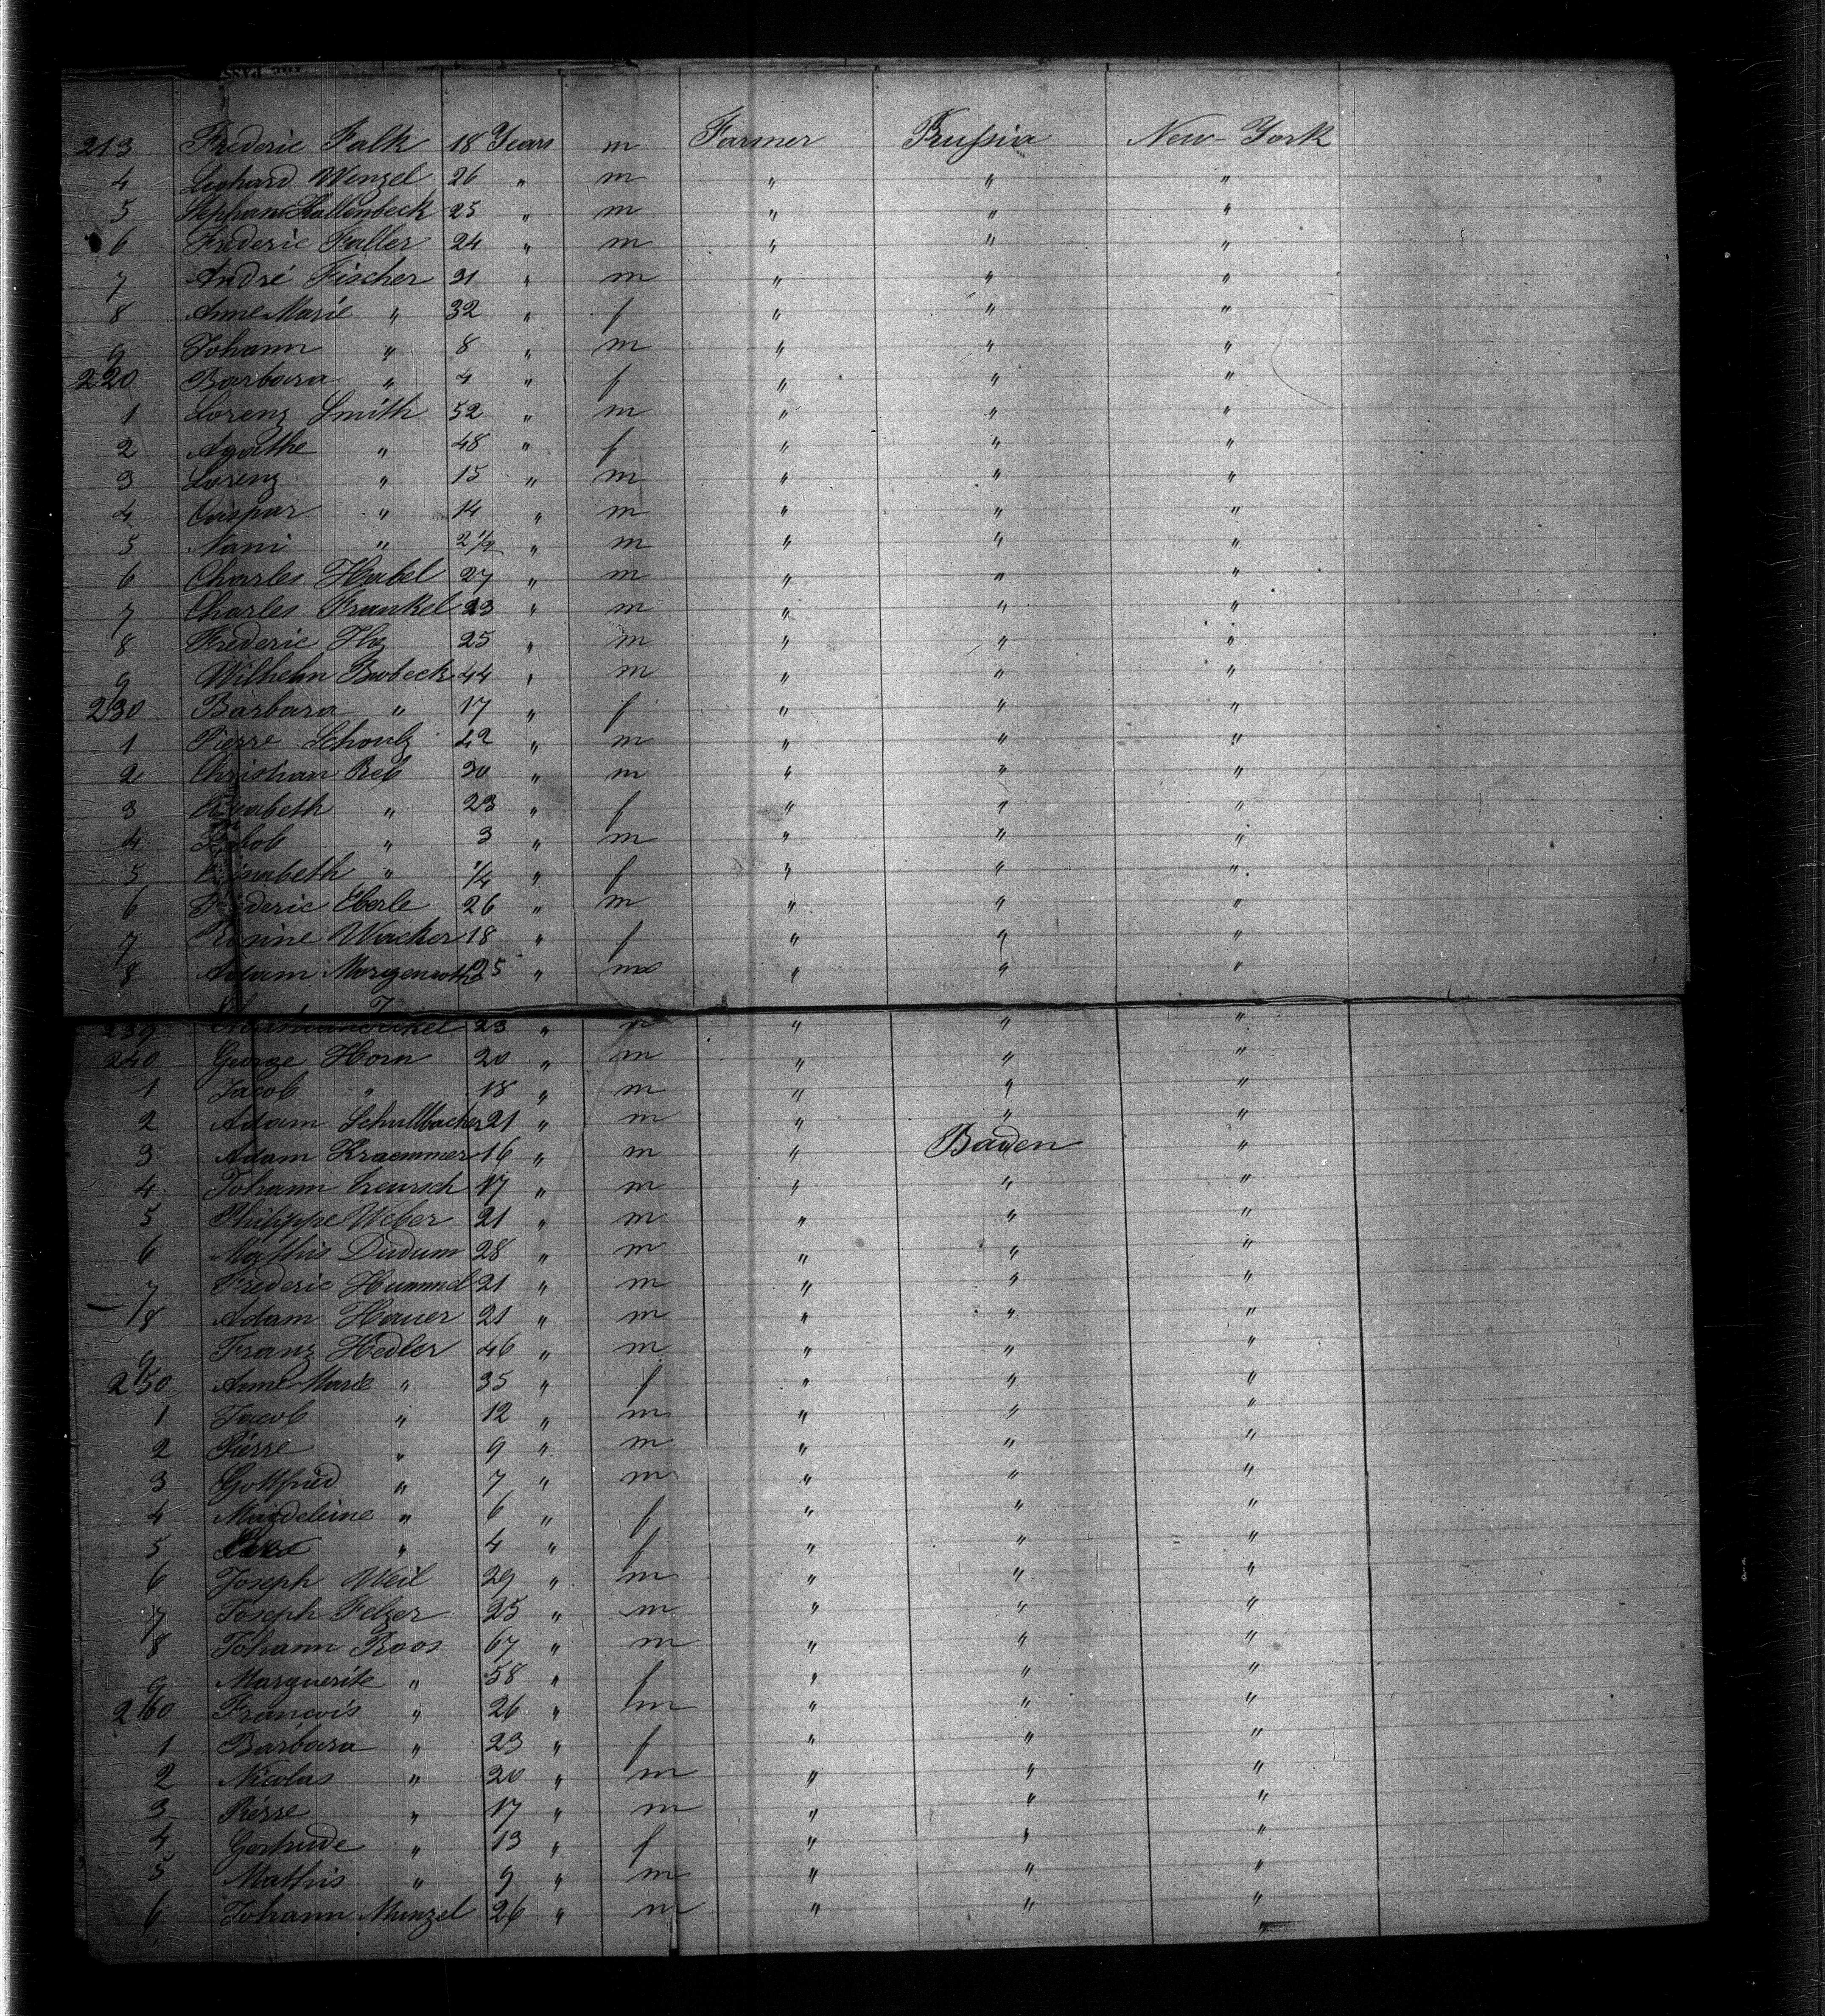 213 Frederic Falk 18 Years m Farmer Prussia New-York
4 Leohard Wenzel 26 " m " " "
5 Stephan Kallenbeck 25 " m " " "
6 Frederic Faller 24 " m " " "
7 André Fischer 31 " m " " "
8 Anne Marie " 32 " f " " "
9 Johann " 8 " m " " "
220 Barbara " 4 " f " " "
1 Lorenz Smith 52 " m " " "
2 Agathe " 48 " f " " "
3 Lorenz " 15 " m " " "
4 Caspar " 14 " m " " "
5 Nani " 2 1/2 " m " " "
6 Charles Habel 27 " m " " "
7 Charles Frankel 23 " m " " "
8 Frederic 25 " m " " "
9 Wilhelm Bubeck 44 " m " " "
230 Barbara " 17 " f " " "
1 Pierre Schoulz 42 " m " " "
2 Christian Reb 30 " m " " "
3 Elisabeth " 23 " f " " "
4 Jakob " 3 " m " " "
5 Elisabeth " 1/4 " f " " "
6 Frederic Eberle 26 " m " " "
7 Rosine Wacker 18 " f " " "
8 Adam Morgenroth 25 " m " " "
239 Christian 23 " m " " "
240 George Horn 20 " m " " "
1 Jacob " 18 " m " " "
2 Adam Schullbacher 21 " m " " "
3 Adam Kraemmer 16 " m " Baden "
4 Johann Creursch 17 " m " " "
5 Philippe Weber 21 " m " " "
6 Mathis Dudum 28 " m " " "
7 Frederic Hummel 21 " m " " "
8 Adam Hauer 21 " m " " "
9 Franz Hedler 46 " m " " "
250 Anne Marie " 35 " f " " "
1 Jacob " 12 " m " " "
2 Pierre " 9 " m " " "
3 Gottfried " 7 " m " " "
4 Magdeleine " 6 " f " " "
5 " 4 " f " " "
6 Joseph Weil 29 " m " " "
7 Joseph Felzer 25 " m " " "
8 Johann Roos 67 " m " " "
9 Marguerite " 58 " f " " "
260 Francois " 26 " m " " "
1 Barbara " 23 " f " " "
2 Nicolas " 20 " m " " "
3 Pierre " 17 " m " " "
4 Gertrude " 13 " f " " "
5 Mathis " 9 " m " " "
6 Johann Munzel 26 " m " " "
"